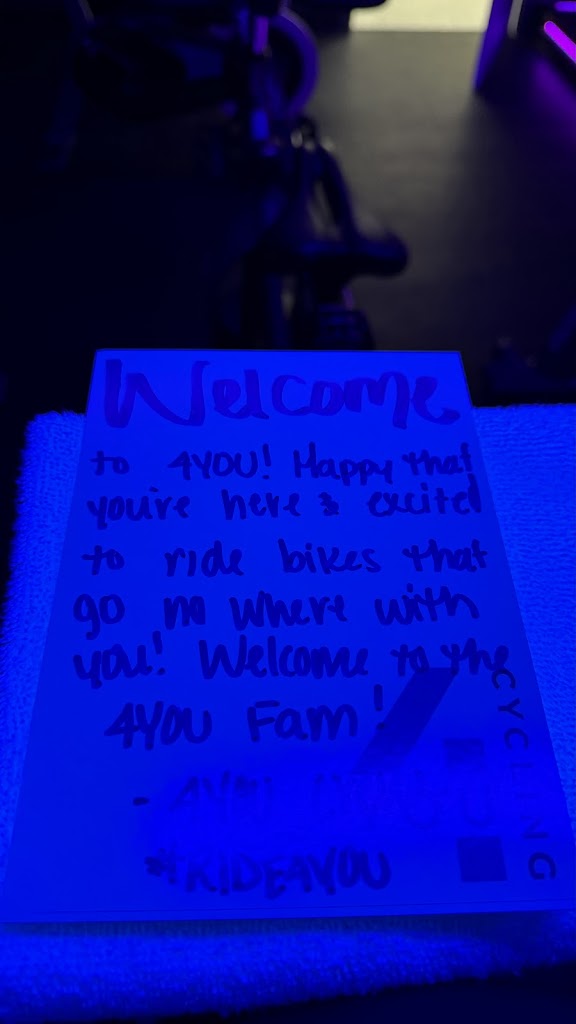 Welcome
to 4YOU! Happy that
you're here & excited
to ride bikes that
go no where with
you! Welcome to the
4YOU Fam!
- 4YOU
#RIDE4YOU
CYCLING